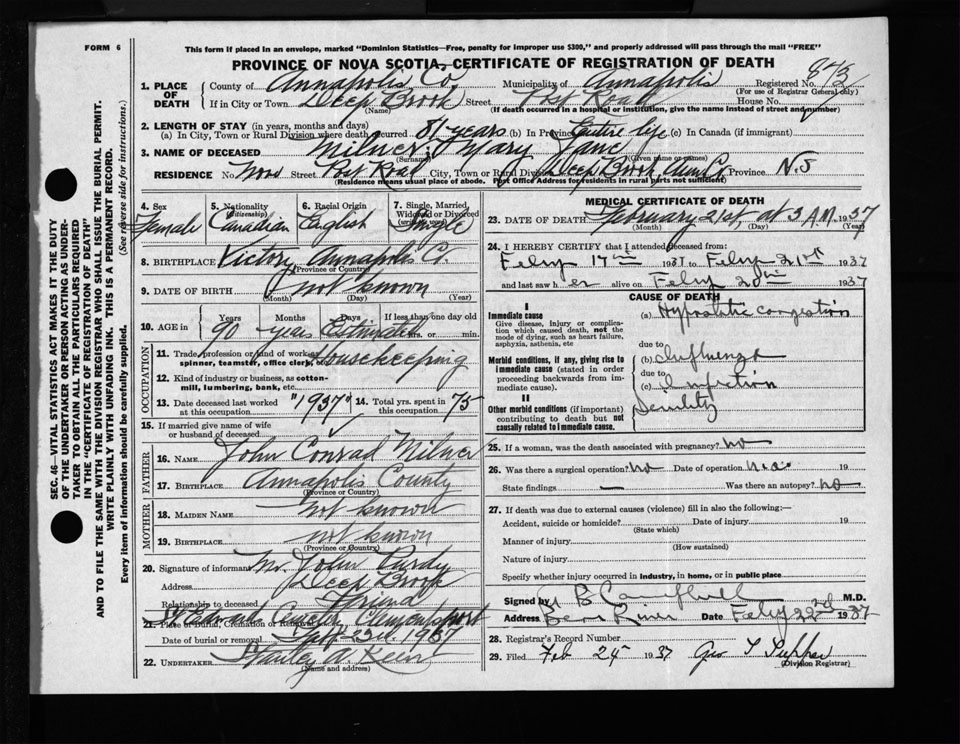 FORM 6
This form if placed in an envelope, marked "Dominion Statistics—Free, penalty for improper use $300," and properly addressed will pass through the mail "FREE"
PROVINCE OF NOVA SCOTIA, CERTIFICATE OF REGISTRATION OF DEATH
SEC. 46—VITAL STATISTICS ACT MAKES IT THE DUTY
OF THE UNDERTAKER OR PERSON ACTING AS UNDER-
TAKER TO OBTAIN ALL THE PARTICULARS REQUIRED
IN THE "CERTIFICATE OF REGISTRATION OF DEATH"
AND TO FILE THE SAME WITH THE DIVISION REGISTRAR WHO SHALL ISSUE THE BURIAL PERMIT.
WRITE PLAINLY WITH UNFADING INK. THIS IS A PERMANENT RECORD.
Every item of information should be carefully supplied. (See reverse side for instructions.)
1. PLACE OF DEATH
County of Annapolis Co. Municipality of Annapolis Registered No.
(For use of Registrar General only)
If in City or Town Deep Brook Street Post Road House No.
(Name) (If death occurred in a hospital or institution, give the name instead of street and number)
2. LENGTH OF STAY (in years, months and days)
(a) In City, Town or Rural Division where death occurred 81 years (b) In Province Entire life (c) In Canada (if immigrant)
3. NAME OF DECEASED Milner: Mary Jane
(Surname) (Given name or names)
RESIDENCE No. Street Post Road City, Town or Rural Division Deep Brook, Ann Co. Province N.S
(Residence means usual place of abode. Post Office Address for residents in rural parts not sufficient)
4. Sex
Female
5. Nationality
(Citizenship)
Canadian
6. Racial Origin
English
7. Single, Married, Widowed or Divorced
Single
8. BIRTHPLACE Victory Annapolis Co.
(Province or Country)
9. DATE OF BIRTH not known
(Month) (Day) (Year)
10. AGE in
Years Months Days If less than one day old
90 years Estimated hrs. or min.
OCCUPATION
11. Trade, profession or kind of work as spinner, teamster, office clerk, etc. Housekeeping
12. Kind of industry or business, as cotton-mill, lumbering, bank, etc.
13. Date deceased last worked at this occupation "1937"
14. Total yrs. spent in this occupation 75
15. If married give name of wife or husband of deceased
FATHER
16. Name John Conrad Milner
17. Birthplace Annapolis County
(Province or Country)
MOTHER
18. Maiden Name not known
19. Birthplace not known
(Province or Country)
20. Signature of informant Mr. John Purdy
Address Deep Brook
Relationship to deceased Friend
21. Place of Burial, Cremation or Removal St Edward Clementsport
Date of burial or removal 23rd 1937
22. UNDERTAKER Stanley A.
(Name and address)
MEDICAL CERTIFICATE OF DEATH
23. DATE OF DEATH February 21st, at 3 A.M. 1937
(Month) (Day) (Year)
24. I HEREBY CERTIFY that I attended deceased from:
Febry 17th 1937 to Febry 21st 1937
and last saw her alive on Febry 20th 1937
CAUSE OF DEATH
I
Immediate cause
Give disease, injury or complication which caused death, not the mode of dying, such as heart failure, asphyxia, asthenia, etc
(a) Hypostatic congestion
due to
Morbid conditions, if any, giving rise to immediate cause (stated in order proceeding backwards from immediate cause).
(b) Influenza
due to
(c) Infection
II
Other morbid conditions (if important) contributing to death but not causally related to immediate cause.
Senility
25. If a woman, was the death associated with pregnancy? no
26. Was there a surgical operation? no Date of operation 19
State findings — Was there an autopsy? no
27. If death was due to external causes (violence) fill in also the following:—
Accident, suicide or homicide? Date of injury 19
(State which)
Manner of injury
(How sustained)
Nature of injury
Specify whether injury occurred in industry, in home, or in public place
Signed by Campbell M.D.
Address Bear River Date Febry 22nd 1937
28. Registrar's Record Number
29. Filed Feb 24th 1937 Geo T Tupper
(Division Registrar)